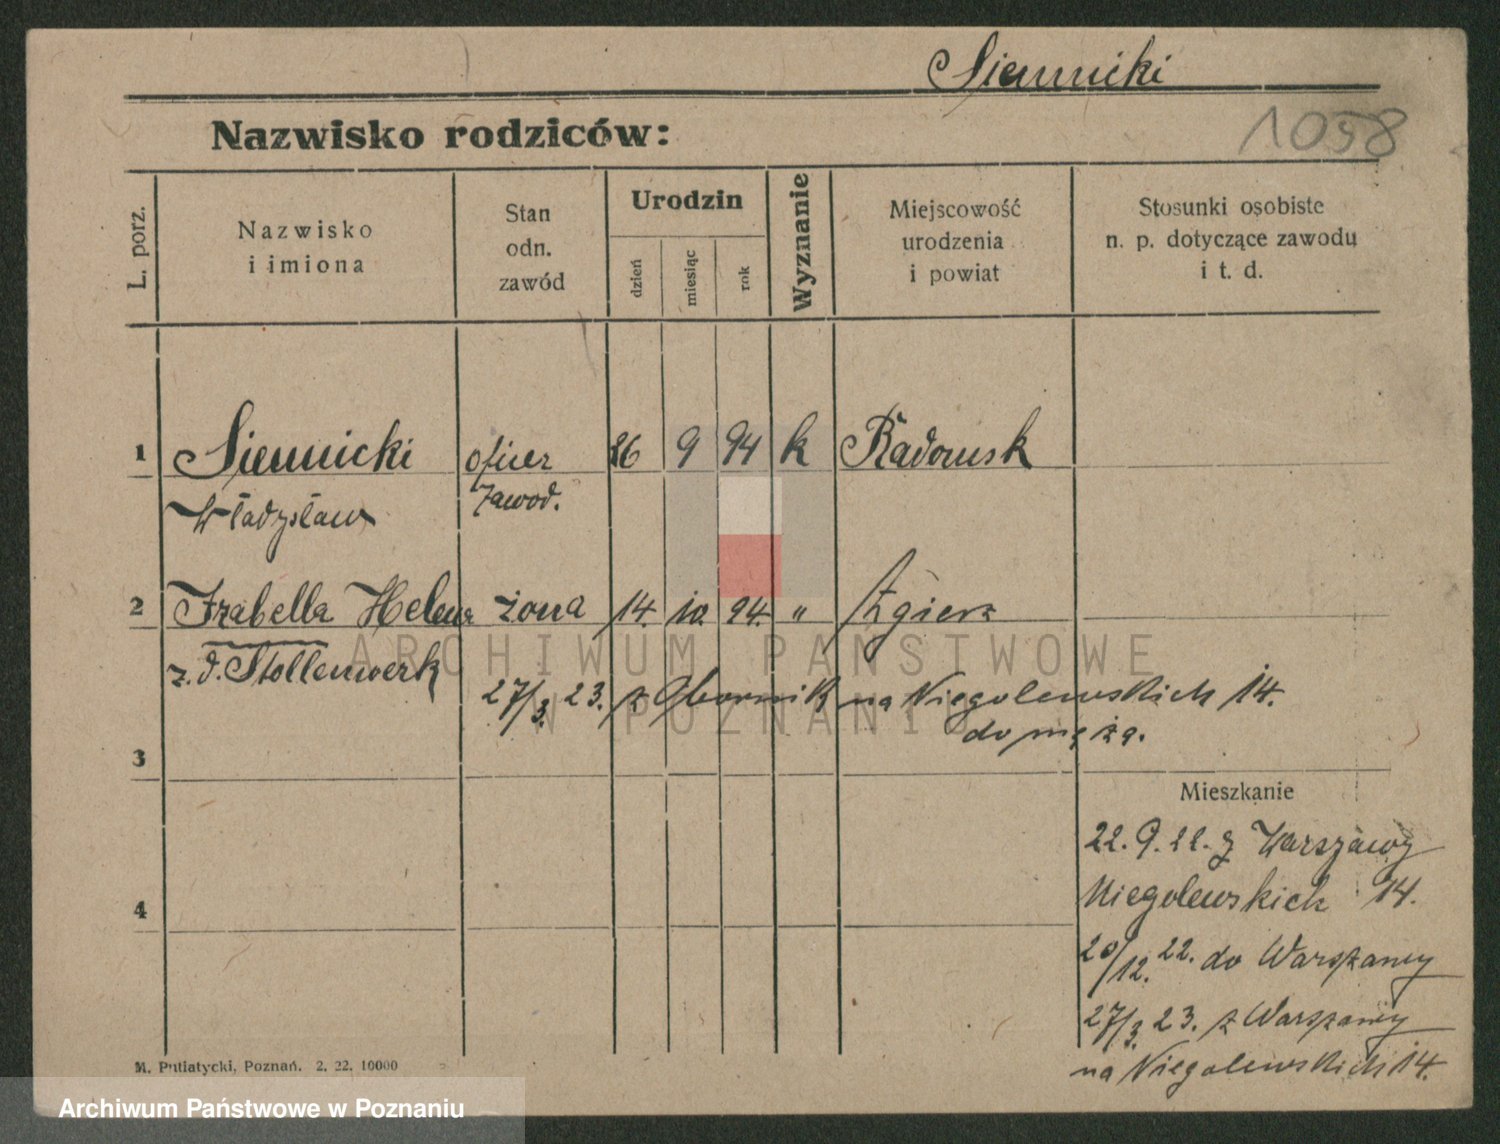 Siennicki
1058
Nazwisko rodziców:
L. porz.
Nazwisko
i imiona
Stan
odn.
zawód
Urodzin
dzień
miesiąc
rok
Wyznanie
Miejscowość
urodzenia
i powiat
Stosunki osobiste
n. p. dotyczące zawodu
i t. d.
1 Siennicki oficer 26 9 94 k Radomsk
Władysław zawod.
2 Izabella Helena żona 14. 10. 94. " Zgierz
z d. Stollenwerk
27/3. 23. z Obornik na Niegolewskich 14.
do męża.
3
Mieszkanie
22. 9. 22. z Warszawy
Niegolewskich 14.
4
20/12. 22. do Warszawy
27/3. 23. z Warszawy
na Niegolewskich 14.
M. Putiatycki, Poznań. 2. 22. 10000
ARCHIWUM PAŃSTWOWE
W POZNANIU
Archiwum Państwowe w Poznaniu